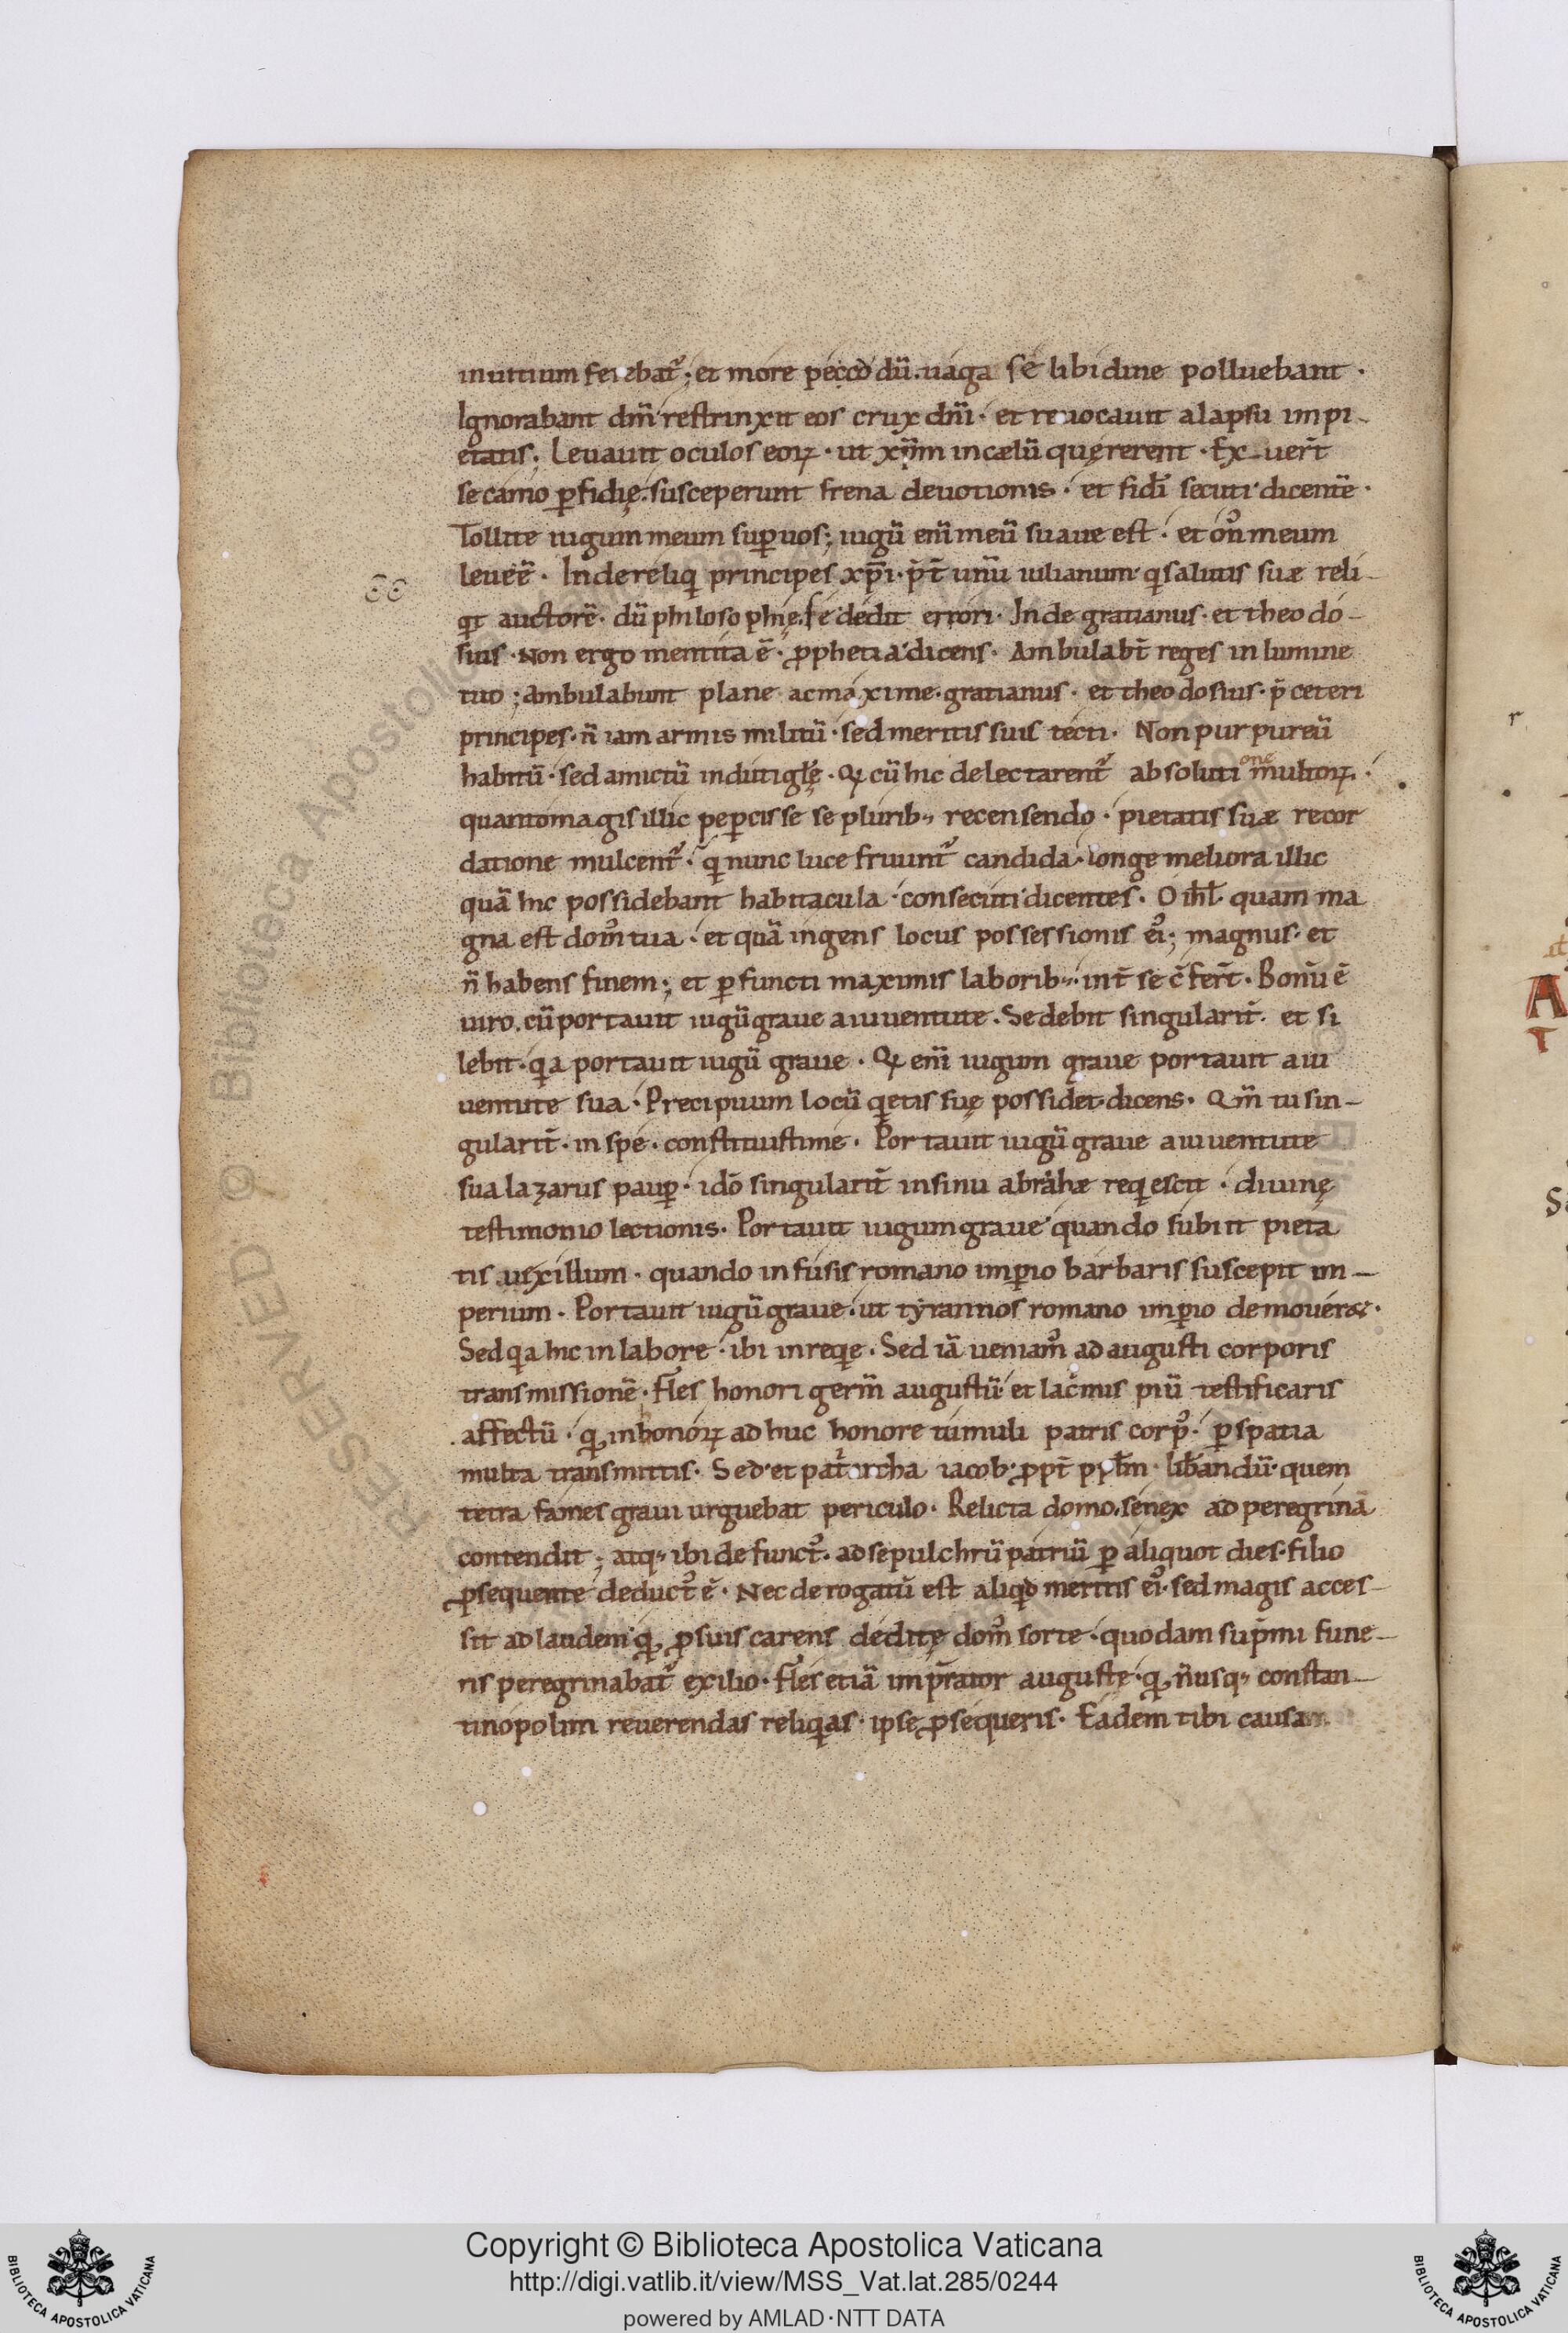 inuitium ferebat᷑; et more peccoꝺ dū. uaga se libidine polluebant.
Ignorabant dn̄m restrinxit eos crux dn̄i. et reuocauit alapsu impi-
etatis; Leuauit oculos eoꝝ. ut xp̄m in cælū quęrerent. Exuer̄t
se camo ꝑfidię. susceperunt frena deuotionis. et fidī secuti dicentē.
Tollite iugum meum suꝑ uos; iugū enī meū suaue est. et on᷒ meum
leue ē. Inde reliqi principes xp̄i. p̄t unū iulianum. qi salutis suæ reli-
qit auctorē. dū philosophię. se dedit errori. Inde gratianus. et theodo-
sius. Non ergo mentita ē. ꝓphetia dicens. Ambulabt̄ reges in lumine
tuo; ambulabunt plane ac maxime. gratianus. et theodosius. p̄ ceteri
principes. n̄ iam armis militū. sed meritis suis tecti. Non purpureū
habitū. sed amictū induti glę̄. Qi cū hic delectarent᷑ absoluti one multoꝝ.
quanto magis illic peꝑcisse se plurib; recensendo. pietatis suæ recor
datione mulcent᷑. qi nunc luce fruunt᷑ candida. longe meliora illic
quā hic possidebant habitacula. consecuti dicentes. O ihl̄. quam ma
gna est dom᷒ tua. et quā ingens locus possessionis ei᷒; magnus. et
n̄ habens finem; et ꝑfuncti maximis laborib;. int̄ se c̄fer̄t. Bonū ē
uiro. cū portauit iugū graue a iuuentute. Sedebit singularit̄. et si
lebit. qia portauit iugū graue. Qi enī iugum graue portauit a iu
uentute sua. Precipuum locū qietis suę possidet. dicens. Qm̄ tu sin-
gularit̄. in spe. constituisti me. Portauit iugū graue a iuuentute
sua lazarus pauꝑ. idō singularit̄ in sinu abrahæ reqiescit. diuinę
testimonio lectionis. Portauit iugum graue quando subiit pieta
tis uexillum. quando infusis romano imꝑio barbaris suscepit im-
perium. Portauit iugū graue. ut tyrannos romano imꝑio demoueret.
Sed qia hic in labore. ibi in reqie. Sed iā ueniam᷒ ad augusti corporis
transmissionē. Fles honori germ̄ augustū et lac̄mis piū testificaris
affectū. qđ inhonoꝝ adhuc honore tumuli patris corp᷒. ꝑ spatia
multa transmittis. Sed et pat̄archa iacob. ꝓpt̄ ppl̄m lib̄andū. quem
tetra fames graui urguebat periculo. Relicta domo. senex ad peregrinā
contendit; atq; ibi defunct᷒. ad sepulchrū patriū ꝑ aliquot dies. filio
ꝓsequente deduct᷒ ē. Nec derogatū est aliqid meritis ei᷒. sed magis acces-
sit ad laudem qđ ꝓ suis carens deditę dom᷒ sorte. quodam sup̄mi fune-
ris peregrinabat᷑ exilio. Fles etiā imp̄rator augustę. qđ n̄ usq; constan-
tinopolim reuerendas reliqias. ipse ꝓsequeris. Eadem tibi causam
Copyright © Biblioteca Apostolica Vaticana
http://digi.vatlib.it/view/MSS_Vat.lat.285/0244
powered by AMLAD·NTT DATA